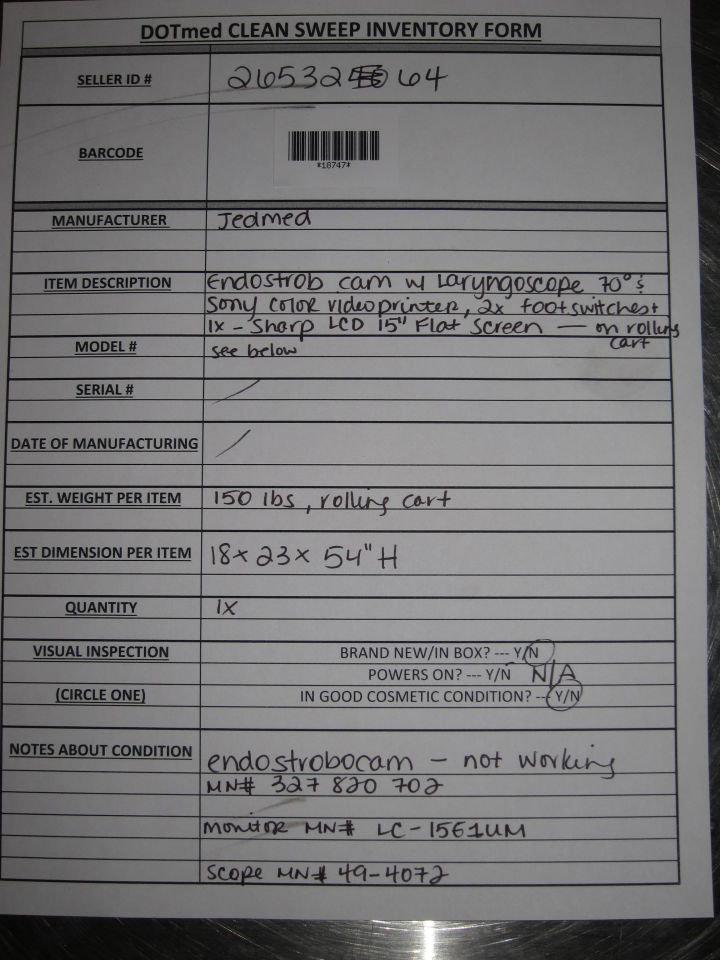 DOTmed CLEAN SWEEP INVENTORY FORM
SELLER ID # 265324 64
BARCODE
*18747*
MANUFACTURER Jedmed
ITEM DESCRIPTION Endostrob cam w/ Laryngoscope 70° &
Sony color videoprinter, 2x footswitches +
1x - Sharp LCD 15" Flat Screen — on rolling
cart
MODEL # see below
SERIAL # /
DATE OF MANUFACTURING /
EST. WEIGHT PER ITEM 150 lbs, rolling cart
EST DIMENSION PER ITEM 18 x 23 x 54" H
QUANTITY 1x
VISUAL INSPECTION BRAND NEW/IN BOX? --- Y/N
POWERS ON? --- Y/N N/A
(CIRCLE ONE) IN GOOD COSMETIC CONDITION? --- Y/N
NOTES ABOUT CONDITION endostrobocam - not working
MN# 327 820 702
monitor MN# LC-15E1UM
scope MN# 49-4072